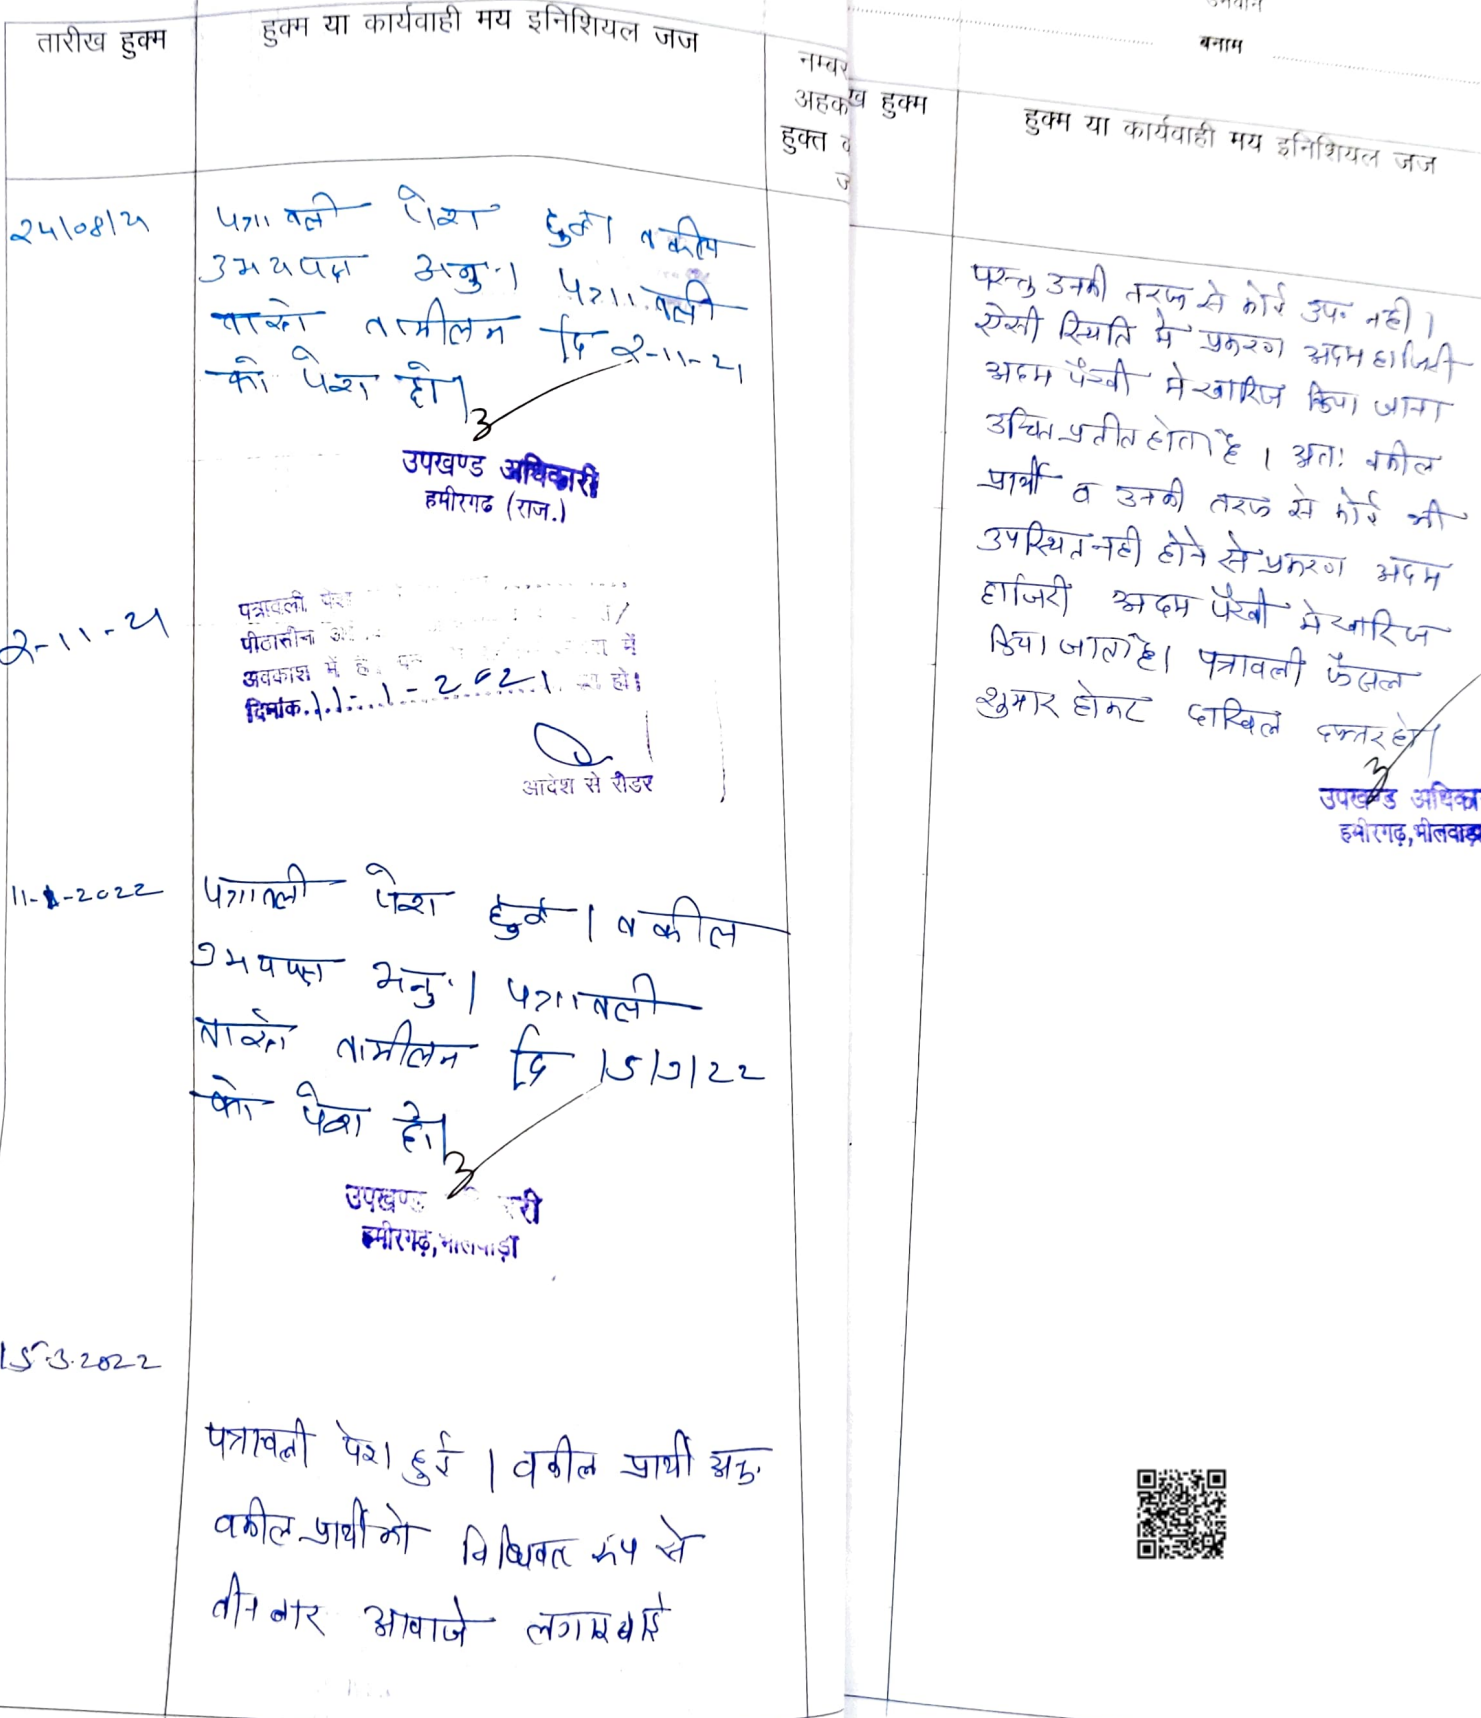 तारीख हुक्म
हुक्म या कार्यवाही मय इनिशियल जज
नम्बर
अहक
हुक्त
24/08/21
पत्रावली पेश हुई। वकील
उभयपक्ष अनु.। पत्रावली
वास्ते तामीलन दि 2-11-21
को पेश हो।
उपखण्ड अधिकारी
हमीरगढ (राज.)
2-11-21
पत्रावली पेश
पीठासीन
अवकाश में है में
दिनांक 11-1-2021 हो।
आदेश से रीडर
11-1-2022
पत्रावली पेश हुई। वकील
उभयपक्ष अनु.। पत्रावली
वास्ते तामीलन दि 15/3/22
को पेश हो।
उपखण्ड री
हमीरगढ़,भीलवाड़ा
15.3.2022
पत्रावली पेश हुई। वकील प्रार्थी अनु.
वकील प्रार्थी को विधिवत रूप से
तीन बार आवाजे लगवाई
बनाम
ख हुक्म
हुक्म या कार्यवाही मय इनिशियल जज
परन्तु उनकी तरफ से कोई उप. नही।
ऐसी स्थिति मे प्रकरण अदम हाजिरी
अदम पैरवी मे खारिज किया जाना
उचित प्रतीत होता है। अतः वकील
प्रार्थी व उनकी तरफ से कोई भी
उपस्थित नही होने से प्रकरण अदम
हाजिरी अदम पैरवी मे खारिज
किया जाता है। पत्रावली फैसल
शुमार होकर दाखिल दफ्तर हो।
उपखण्ड अधिका
हमीरगढ़,भीलवाड़ा